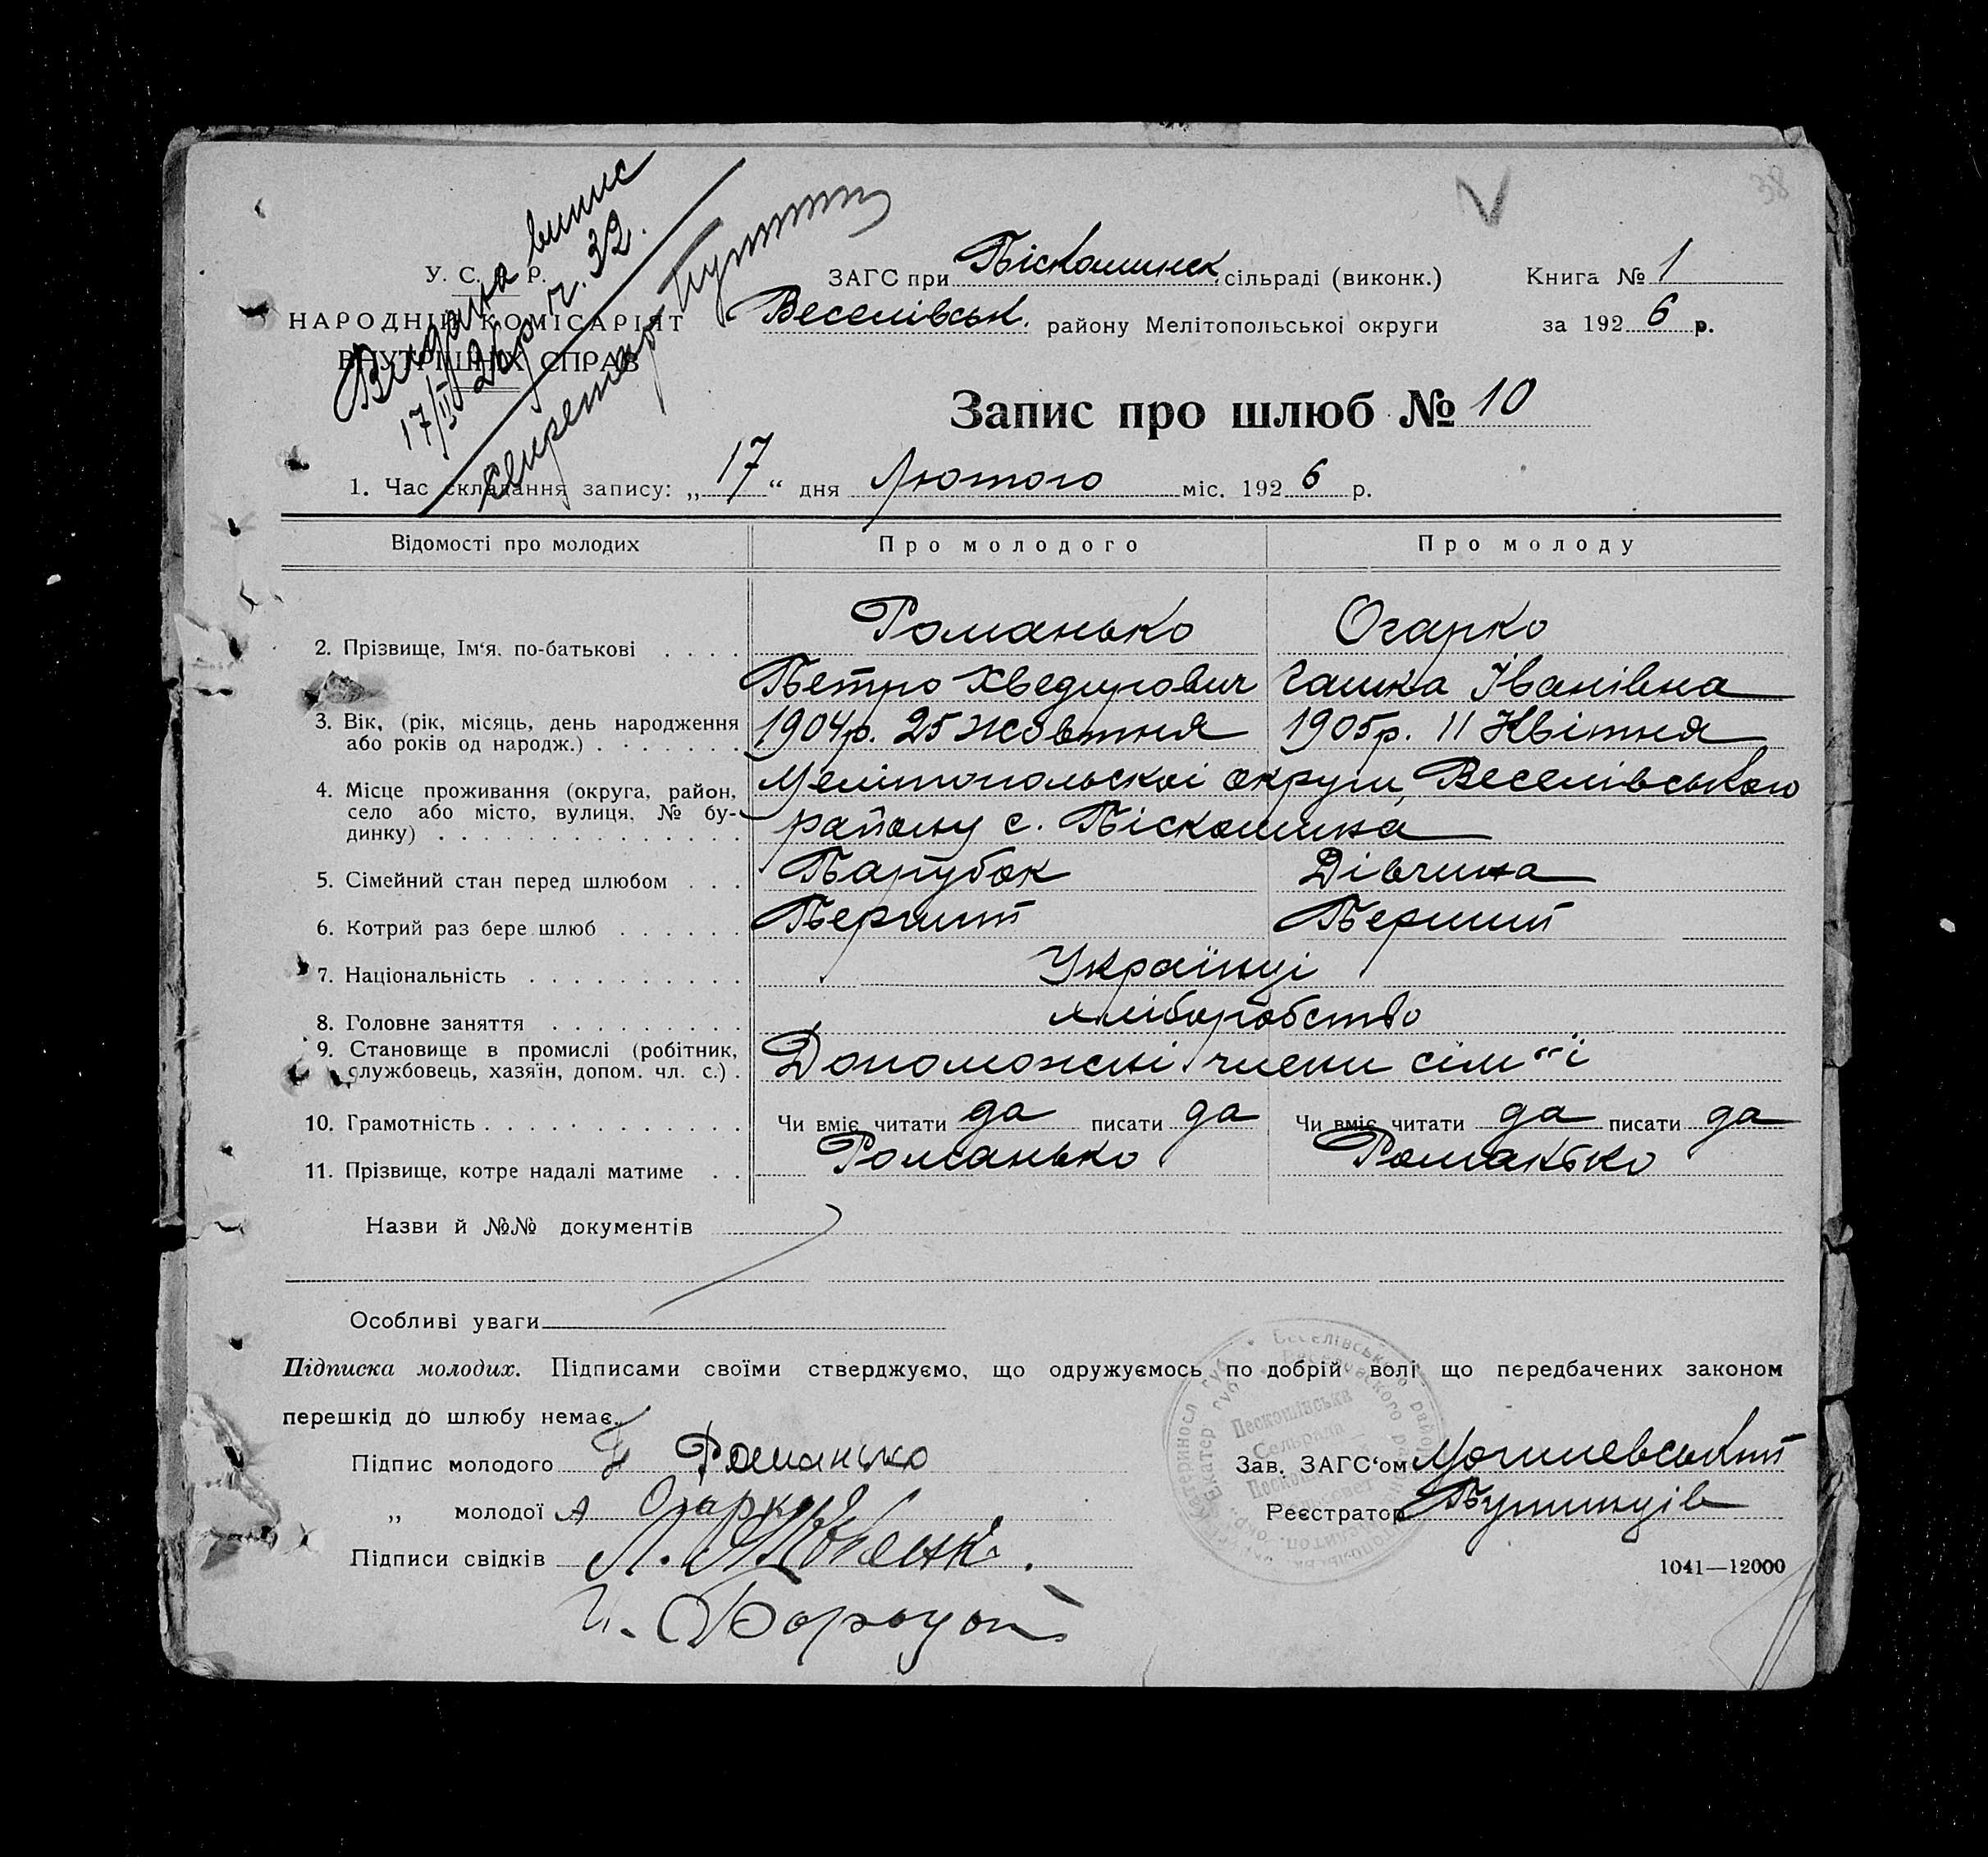 38
Видана випис
17/II 26 р. ч. 32.
Секретарь
У. С. Р. Р.
НАРОДНІЙ КОМІСАРІЯТ
ВНУТРІШНІХ СПРАВ
ЗАГС при Піскошинск. сільраді (виконк.) Книга № 1
Веселівськ. району Мелітопольської округи за 1926 р.
Запис про шлюб № 10
1. Час складання запису: „17“ дня Лютого міс. 1926 р.
Відомості про молодих Про молодого Про молоду
2. Прізвище, Ім‘я, по-батькові . . . . Романько Огарко
Петро Хведирович Гашка Іванівна
3. Вік, (рік, місяць, день народження 1904р. 25 жовтня 1905р. 11 Квітня
або років од народж.) . . . . . . .
4. Місце проживання (округа, район, Мелітопольскої округи, Веселівського
село або місто, вулиця, № бу- району с. Піскошина
динку) . . . . . . . . . . . . . .
5. Сімейний стан перед шлюбом . . . Парубок Дівчина
6. Котрий раз бере шлюб . . . . . . Перший Перший
7. Національність . . . . . . . . . . Українці
8. Головне заняття . . . . . . . . . хліборобство
9. Становище в промислі (робітник, Допоможні члени сім“ї
службовець, хазяїн, допом. чл. с.) .
10. Грамотність . . . . . . . . . . . . Чи вміє читати да писати да Чи вміє читати да писати да
11. Прізвище, котре надалі матиме . . Романько Романько
Назви й №№ документів
Особливі уваги
Підписка молодих. Підписами своїми стверджуємо, що одружуємось по добрій волі що передбачених законом
перешкід до шлюбу немає.
Підпис молодого П Романько Зав. ЗАГС‘ом Могилевський
„ молодої А Огарко Реєстратор
Підписи свідків
1041—12000
Веселівського
Пескошинська
Сельрада